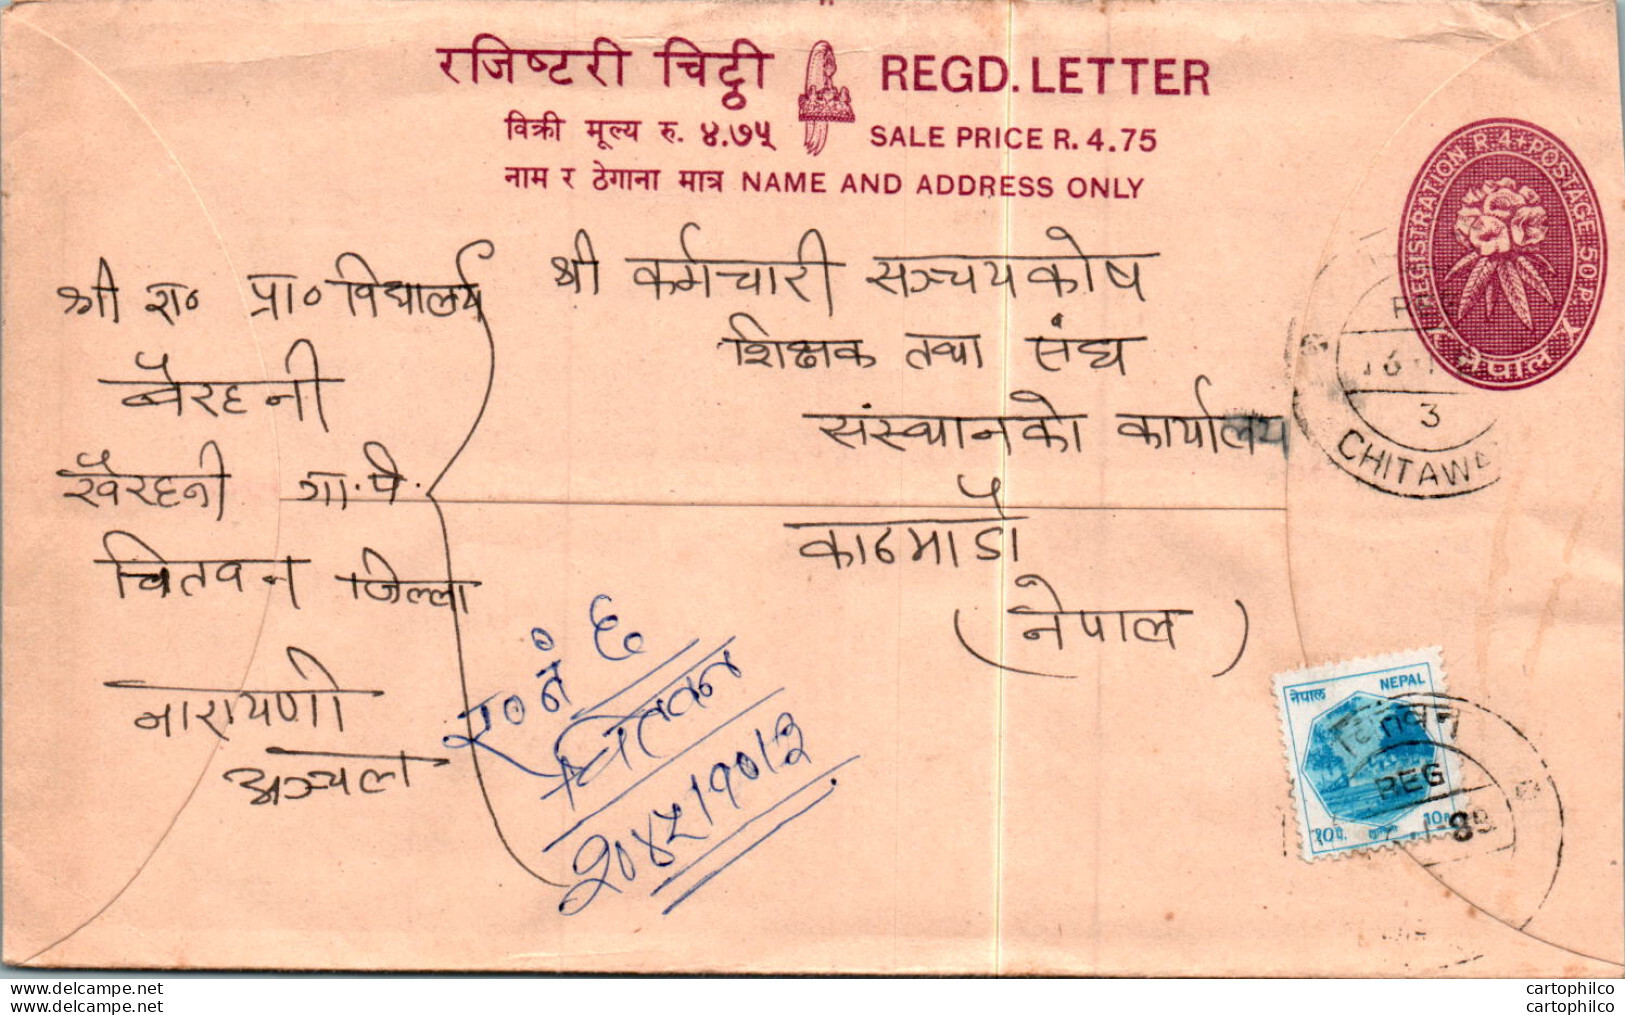 रजिष्टरी चिट्ठी REGD. LETTER
विक्री मूल्य रु. ४.७५ SALE PRICE R. 4.75
नाम र ठेगाना मात्र NAME AND ADDRESS ONLY
REGISTRATION R 4+POSTAGE 50 P.
नेपाल
श्री कर्मचारी सञ्चयकोष
शिक्षक तथा संघ
संस्थानको कार्यालय
काठमाडौं
(नेपाल)
श्री रा० प्रा० विद्यालय
बैरहनी
खैरहनी गा.पं.
चितवन जिल्ला
नारायणी
अञ्चल
र०नं ६०
चितवन
२०४५।१०।३
3
CHITAWA
नेपाल NEPAL
१०पै. 10
चितवन
REG
www.delcampe.net
www.delcampe.net
cartophilco
cartophilco